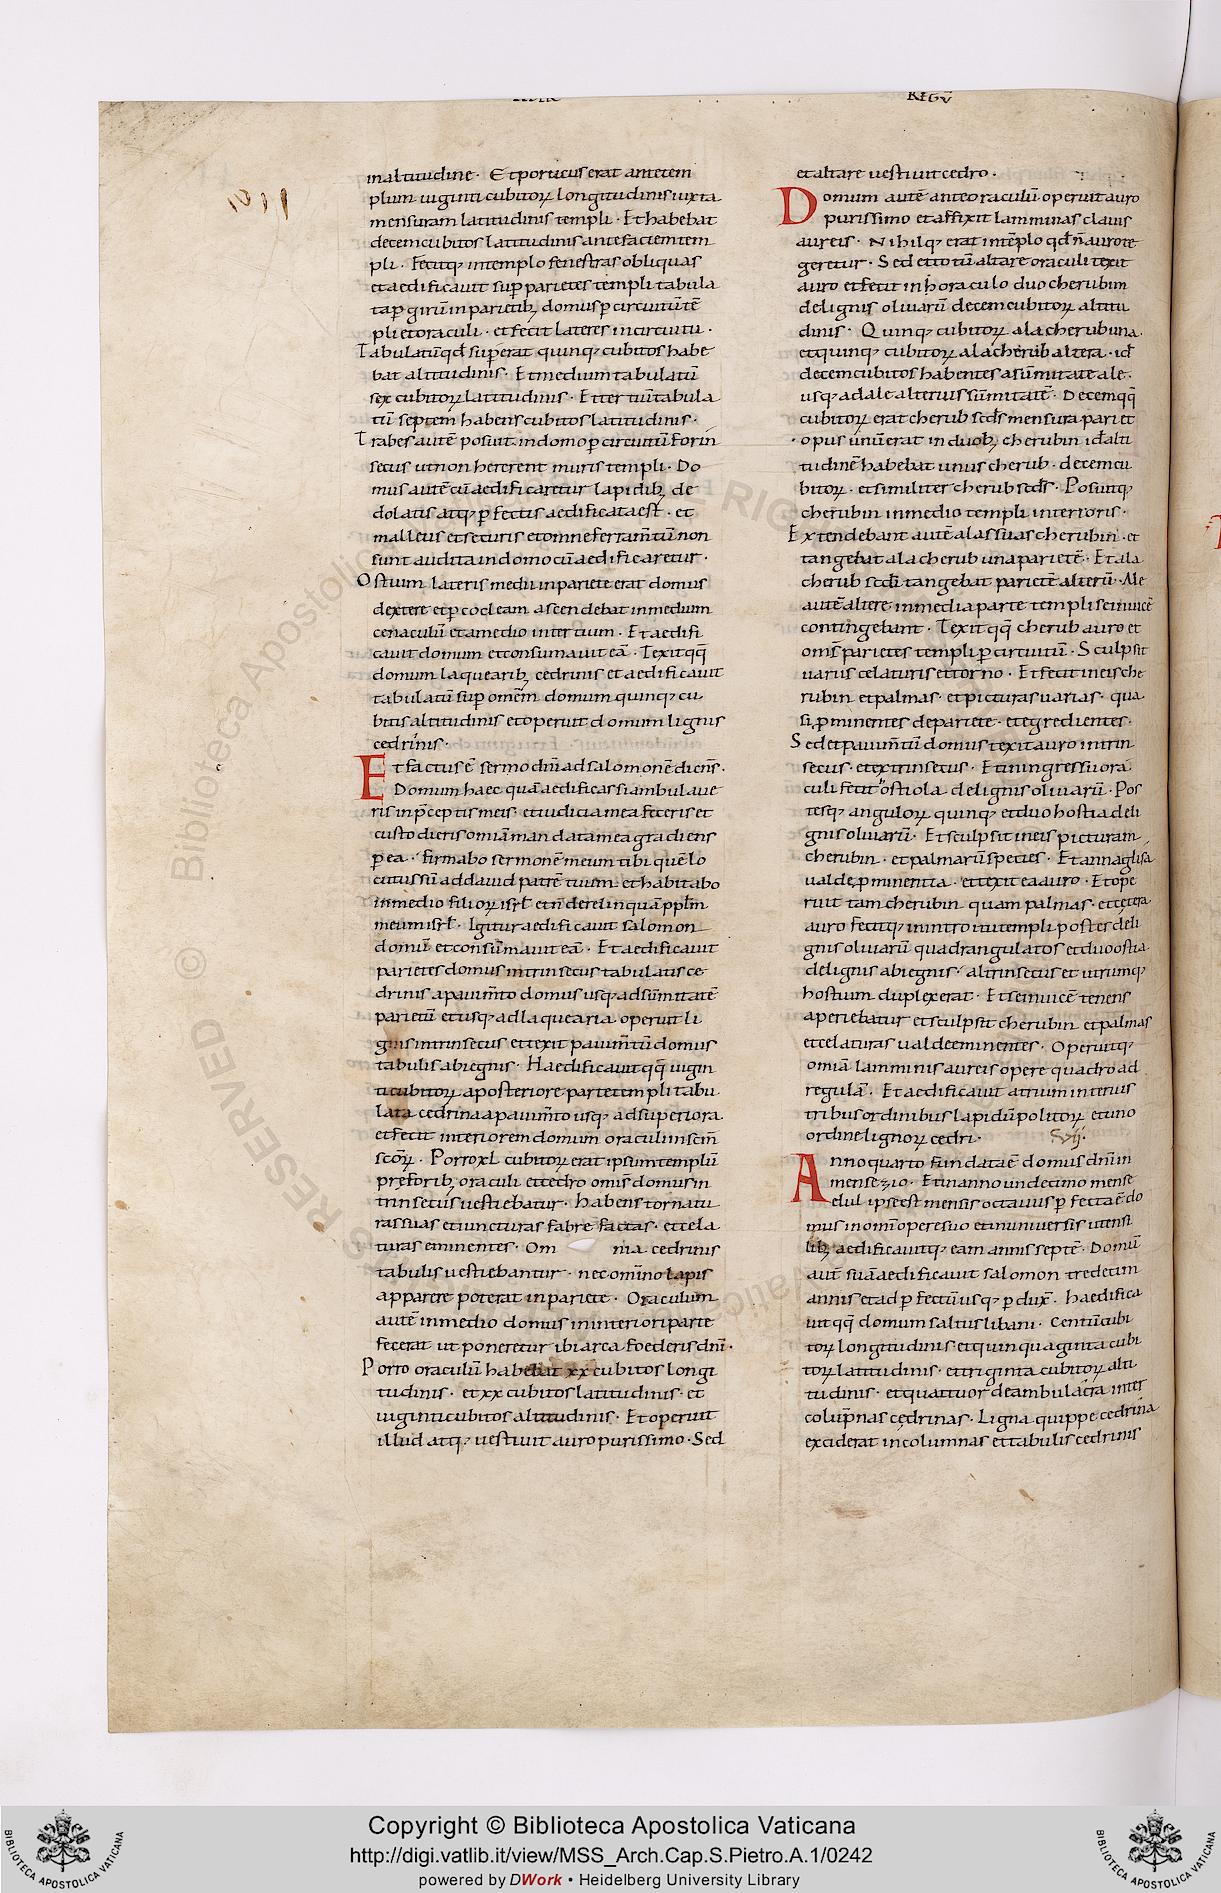 REGŪ
in altitudine · Et porticus erat ante tem
plum uiginti cubitoꝝ longitudinis iuxta
mensuram latitudinis templi · Et habebat
decem cubitos latitudinis ante faciem tem
pli · Fecitq; in templo fenestras obliquas
et aedificauit sup̄ parietes templi tabula
ta p̄ girū in parietib; domus p̄ circuitū tē
pli et oraculi · et fecit lateres in circuitu ·
Tabulatū qd̄ sup̄ erat quinq; cubitos habe
bat altitudinis · Et medium tabulatū
sex cubitoꝝ latitudinis · Et tertiū tabula
tū septem habens cubitos latitudinis ·
Trabes autē posuit in domo p̄ circuitū forin
secus ut non hererent muris templi · Do
mus autē cū aedificaretur lapidib; de
dolatis atq; p̄fectis aedificata est · et
malleus et securis et omne ferram̄tū non
sunt audita in domo cū aedificaretur ·
Ostium lateris medii in pariete erat domus
dextere et p̄ cocleam ascendebat in medium
cenaculū et a medio in tertium · Et aedifi
cauit domum et consumauit eā · Texit qq̄
domum laquearib; cedrinis et aedificauit
tabulatū sup̄ omēm domum quinq; cu
bitis altitudinis et operuit domum lignis
cedrinis ·
Et factus ē sermo dn̄i ad salomonē dicens ·
Domum haec quā aedificas si ambulaue
ris in p̄ceptis meis · et iudicia mea feceris et
custodieris omīa mandata mea gradiens
p̄ ea · firmabo sermonē meum tibi quē lo
cutus sū ad dauid patrē tuum et habitabo
in medio filioꝝ isrł et n̄ derelinquā pplm̄
meum isrł · Igitur aedificauit salomon
domū et consūmauit eā · Et aedificauit
parietes domus intrinsecus tabulatis ce
drinis a pauim̄to domus usq; ad sūmitatē
parietū et usq; ad laquearia operuit li
gnis intrinsecus et texit pauim̄tū domus
tabulis abiegnis · Haedificauit qq̄ uigin
ti cubitoꝝ a posteriore parte templi tabu
lata cedrina a pauim̄to usq; ad superiora
et fecit interiorem domum oraculi in scm̄
scōꝝ · Porro xl cubitoꝝ erat ipsum templū
p̄ forib; oraculi et cedro omīs domus in
trinsecus uestiebatur · habens tornatu
ras suas et iuncturas fabre factas · et cela
turas eminentes · Om nia cedrinis
tabulis uestiebantur · nec omīno lapis
apparere poterat in pariete · Oraculum
autē in medio domus in interiori parte
fecerat ut poneretur ibi arca foederis dn̄i ·
Porro oraculū habebat xx cubitos longi
tudinis · et xx cubitos latitudinis · et
uiginti cubitos altitudinis · Et operuit
illud atq; uestiuit auro purissimo · Sed
et altare uestiuit cedro ·
Domum autē ante oraculū operuit auro
purissimo et affixit lamminas clauis
aureis · Nihilq; erat in tēplo qd̄ n̄ auro te
geretur · Sed et totū altare oraculi texit
auro et fecit in horaculo duo cherubim
de lignis oliuarū decem cubitoꝝ altitu
dinis · Quinq; cubitoꝝ ala cherub una ·
et quinq; cubitoꝝ ala cherub altera · id̄
decem cubitos habentes a sūmitate ale ·
usq; ad ale alterius sūmitatē · Decem qq̄
cubitoꝝ erat cherub scds̄ mensura pari et
opus unū erat in duob; cherubin id̄ alti
tudinē habebat unus cherub · decem cu
bitoꝝ · et similiter cherub scds̄ · Posuitq;
cherubin in medio templi interioris ·
Extendebant autē alas suas cherubin · et
tangebat ala cherub una parietē · Et ala
cherub scdi̅ tangebat parietē alterū · Ale
autē altere in media parte templi se inuicē
contingebant · Texit qq̄ cherub auro et
oms̄ parietes templi p̄ circuitū · Sculpsit
uariis celaturis et torno · Et fecit in eis che
rubin et palmas · et picturas uarias · qua
si p̄minentes de pariete · et egredientes ·
Sed et pauim̄tū domus texit auro intrin
secus · et extrinsecus · Et in ingressu ora
culi fecit ostiola de lignis oliuarū · Pos
tesq; anguloꝝ quinq; et duo hostia de li
gnis oliuarū · Et sculpsit in eis picturam
cherubin · et palmarū species · Et annaglifa
ualde p̄minentia · et texit ea auro · Et ope
ruit tam cherubin quam palmas · et cętera
auro fecitq; in introitu templi postes de li
gnis oliuarū quadrangulatos et duo ostia
de lignis abiegnis · altrinsecus et utrumq;
hostium duplex erat · Et se inuicē tenens
aperiebatur et sculpsit cherubin et palmas
et celaturas ualde eminentes · Operuitq;
omīa lamminis aureis opere quadro ad
regulā · Et aedificauit atrium interius
tribus ordinibus lapidū politoꝝ et uno
ordine lignoꝝ cedri ·
Anno quarto fundata ē domus dn̄i in
mense zio · Et in anno undecimo mense
edul ipse est mensis octauus p̄fecta ē do
mus in omī opere suo et in uniuersis utensi
lib; aedificauitq; eam annis septē · Domū
autē suā aedificauit salomon tredecim
annis et ad p̄fectū usq; p̄dux̄ · haedifica
uit qq̄ domum saltus libani · centū cubi
toꝝ longitudinis et quinquaginta cubi
toꝝ latitudinis · et triginta cubitoꝝ alti
tudinis · et quattuor deambulacra inter
colūpnas cędrinas · Ligna quippe cedrina
exciderat in columnas et tabulis cedrinis
Copyright © Biblioteca Apostolica Vaticana
http://digi.vatlib.it/view/MSS_Arch.Cap.S.Pietro.A.1/0242
powered by DWork • Heidelberg University Library